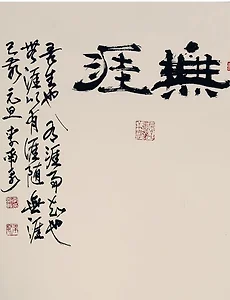 無涯
吾生也有涯而知也
無涯以有涯隨無涯
元旦